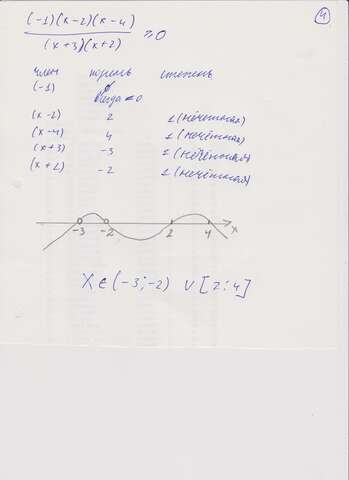 4
(-1)(x-2)(x-4)
(x+3)(x+2)
≥0
член корень степень
(-1) всегда <0
(x-2) 2 1 (нечетная)
(x-4) 4 1 (нечётная)
(x+3) -3 1 (нечётная)
(x+2) -2 1 (нечётная)
-3 -2 2 4 x
x ∈ (-3;-2) ∪ [2;4]